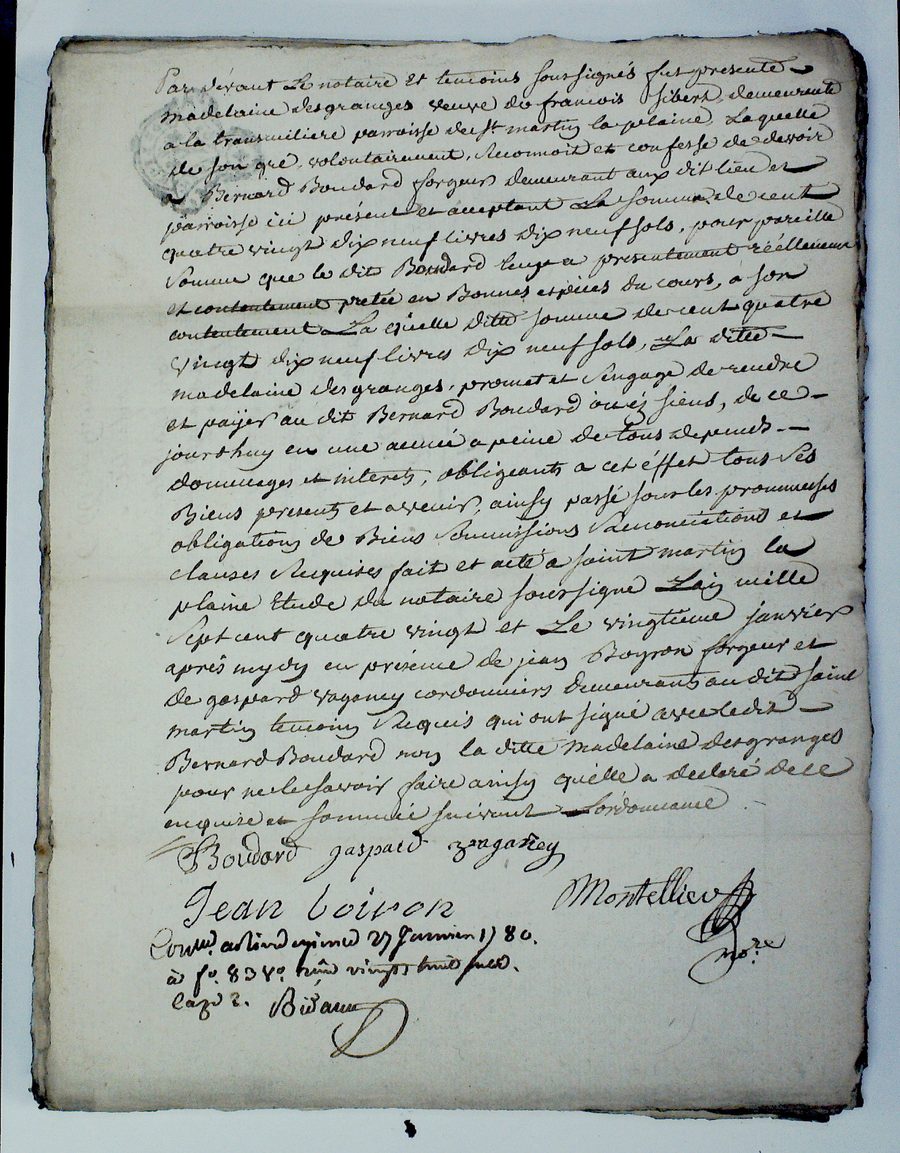 Par dévant Le notaire Et temoins soussignés fut presente
madelaine desgranges veuve de francois sibert, demeurante
a la transmiliere parroisse de st martin la plaine, Laquelle
de son gré, volontairement, Reconnoit et confesse de devoir
a Bernard Boudard forgeur demeurant aux dit lieu et
parroisse ici présent et acceptant La somme de cent
quatre vingt dix neuf livres dix neuf sols, pour pareille
somme que le dit Boudard luy a presentement réèllement
et contentement pretée en Bonnes espèces du cours, a son
contentement La quelle ditte somme de cent quatre
vingt dix neuf livres dix neuf sols, La ditte
madelaine desgranges, promet et s'engage de rendre
et payer au dit Bernard Boudard ou éz siens, de ce
jourdhuy en une année a peine de tous depends
dommages et interets, obligeants a cet éffet tous ses
Biens presents et avenir, ainsy passé sous les prommesses
obligations de Biens Soumissions Renonciations et
clauses Requises fait et acté a saint martin la
plaine Etude du notaire soussigné L'an mille
Sept cent quatre vingt et Le vingtieme janvier
aprés mydy en présence de jean Boyron forgeur et
de gaspard vaganey cordonniers demeurants au dit saint
martin temoins Requis qui ont signé avec ledit
Bernard Boudard non la ditte madelaine desgranges
pour ne le savoir faire ainsy qu'elle a declaré de ce
enquise et sommée suivant L'ordonnance
Boudard gaspard vaganey
Jean Voiron Montellier
nore
27 Janvier 1780.
à fo. 83 vo. vingt huit